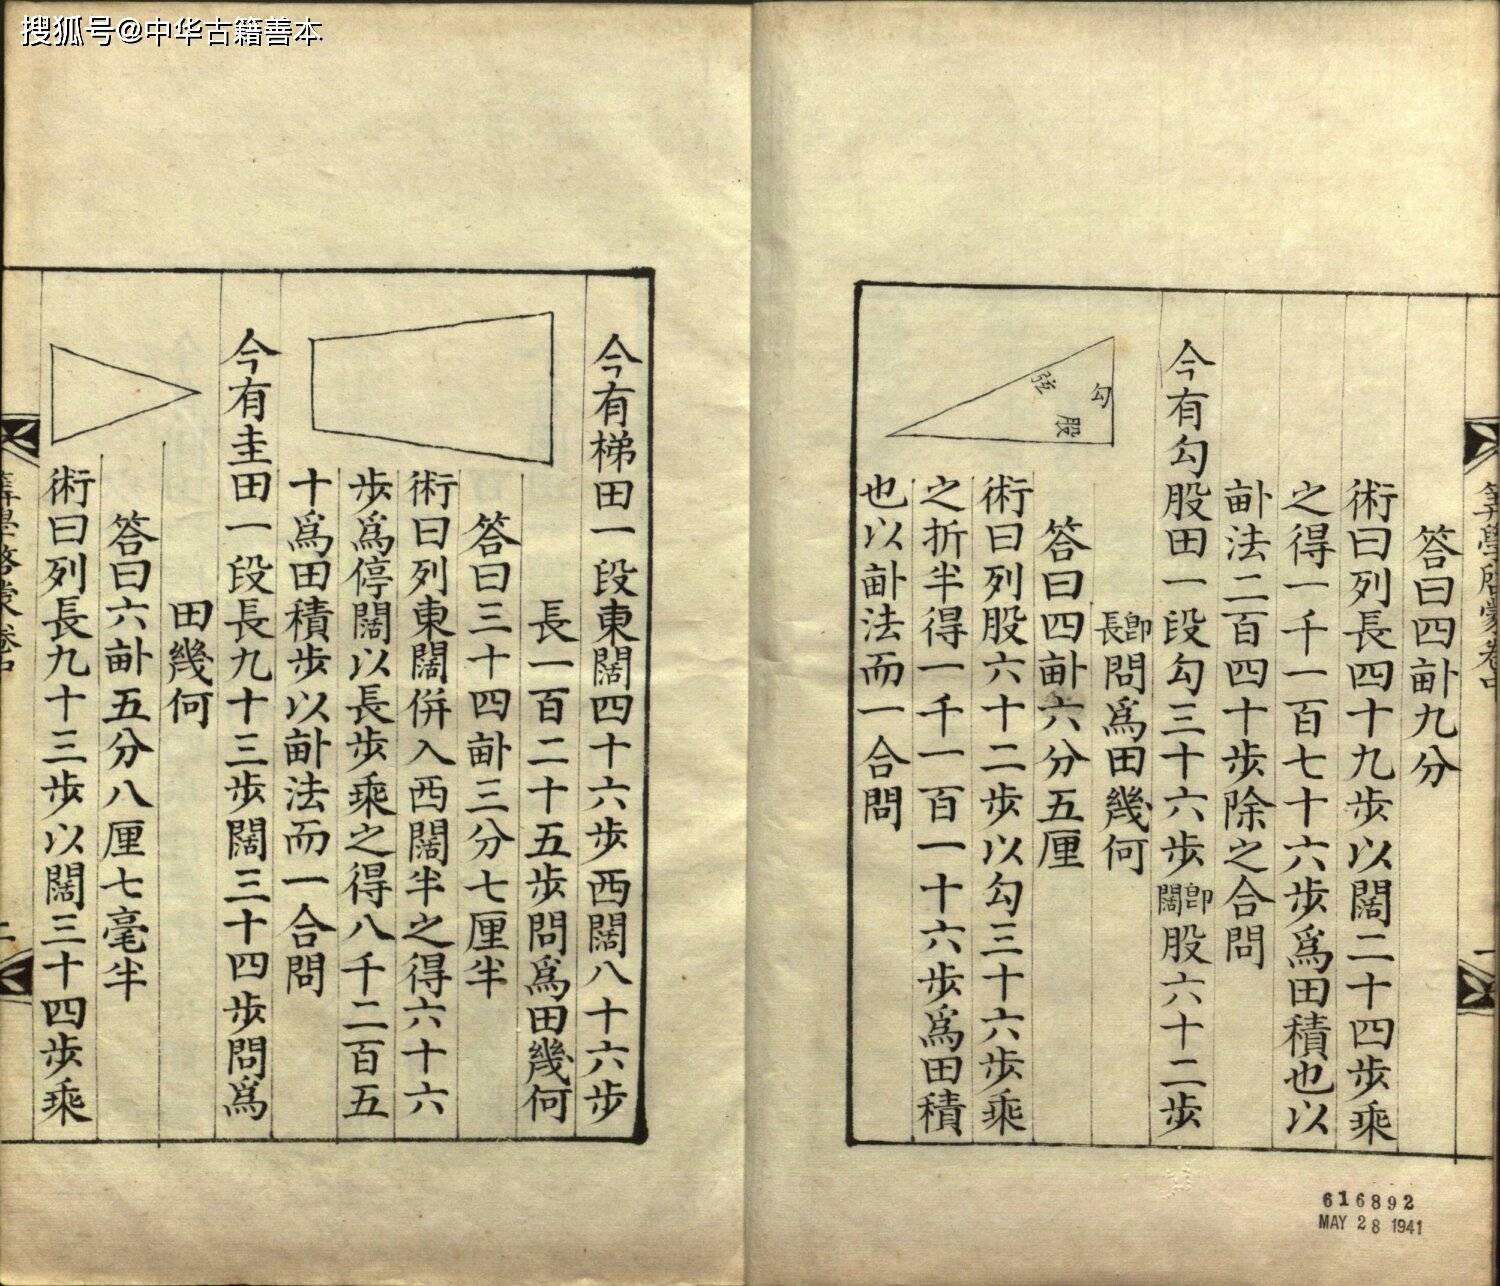 搜狐号@中华古籍善本
答曰四畝九分
術曰列長四十九步以闊二十四步乘
之得一千一百七十六步爲田積也以
畝法二百四十步除之合問
今有勾股田一段勾三十六步即闊股六十二步
即長問爲田幾何
勾
股
弦
答曰四畝六分五厘
術曰列股六十二步以勾三十六步乘
之折半得一千一百一十六步爲田積
也以畝法而一合問
今有梯田一段東闊四十六步西闊八十六步
長一百二十五步問爲田幾何
答曰三十四畝三分七厘半
術曰列東闊併入西闊半之得六十六
步爲停闊以長步乘之得八千二百五
十爲田積步以畝法而一合問
今有圭田一段長九十三步闊三十四步問爲
田幾何
答曰六畝五分八厘七毫半
術曰列長九十三步以闊三十四步乘
616892
MAY 28 1941